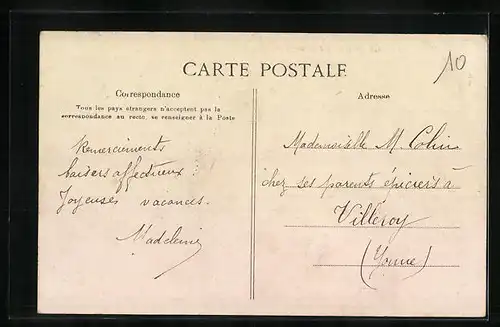 10
CARTE POSTALE
Correspondance
Tous les pays étrangers n'acceptent pas la
correspondance au recto, se renseigner à la Poste
Remerciements
baisers affectueux !
Joyeuses vacances.
Madeleine
Adresse
Mademoiselle M. Colin
chez ses parents épiciers à
Villeroy
(Yonne)